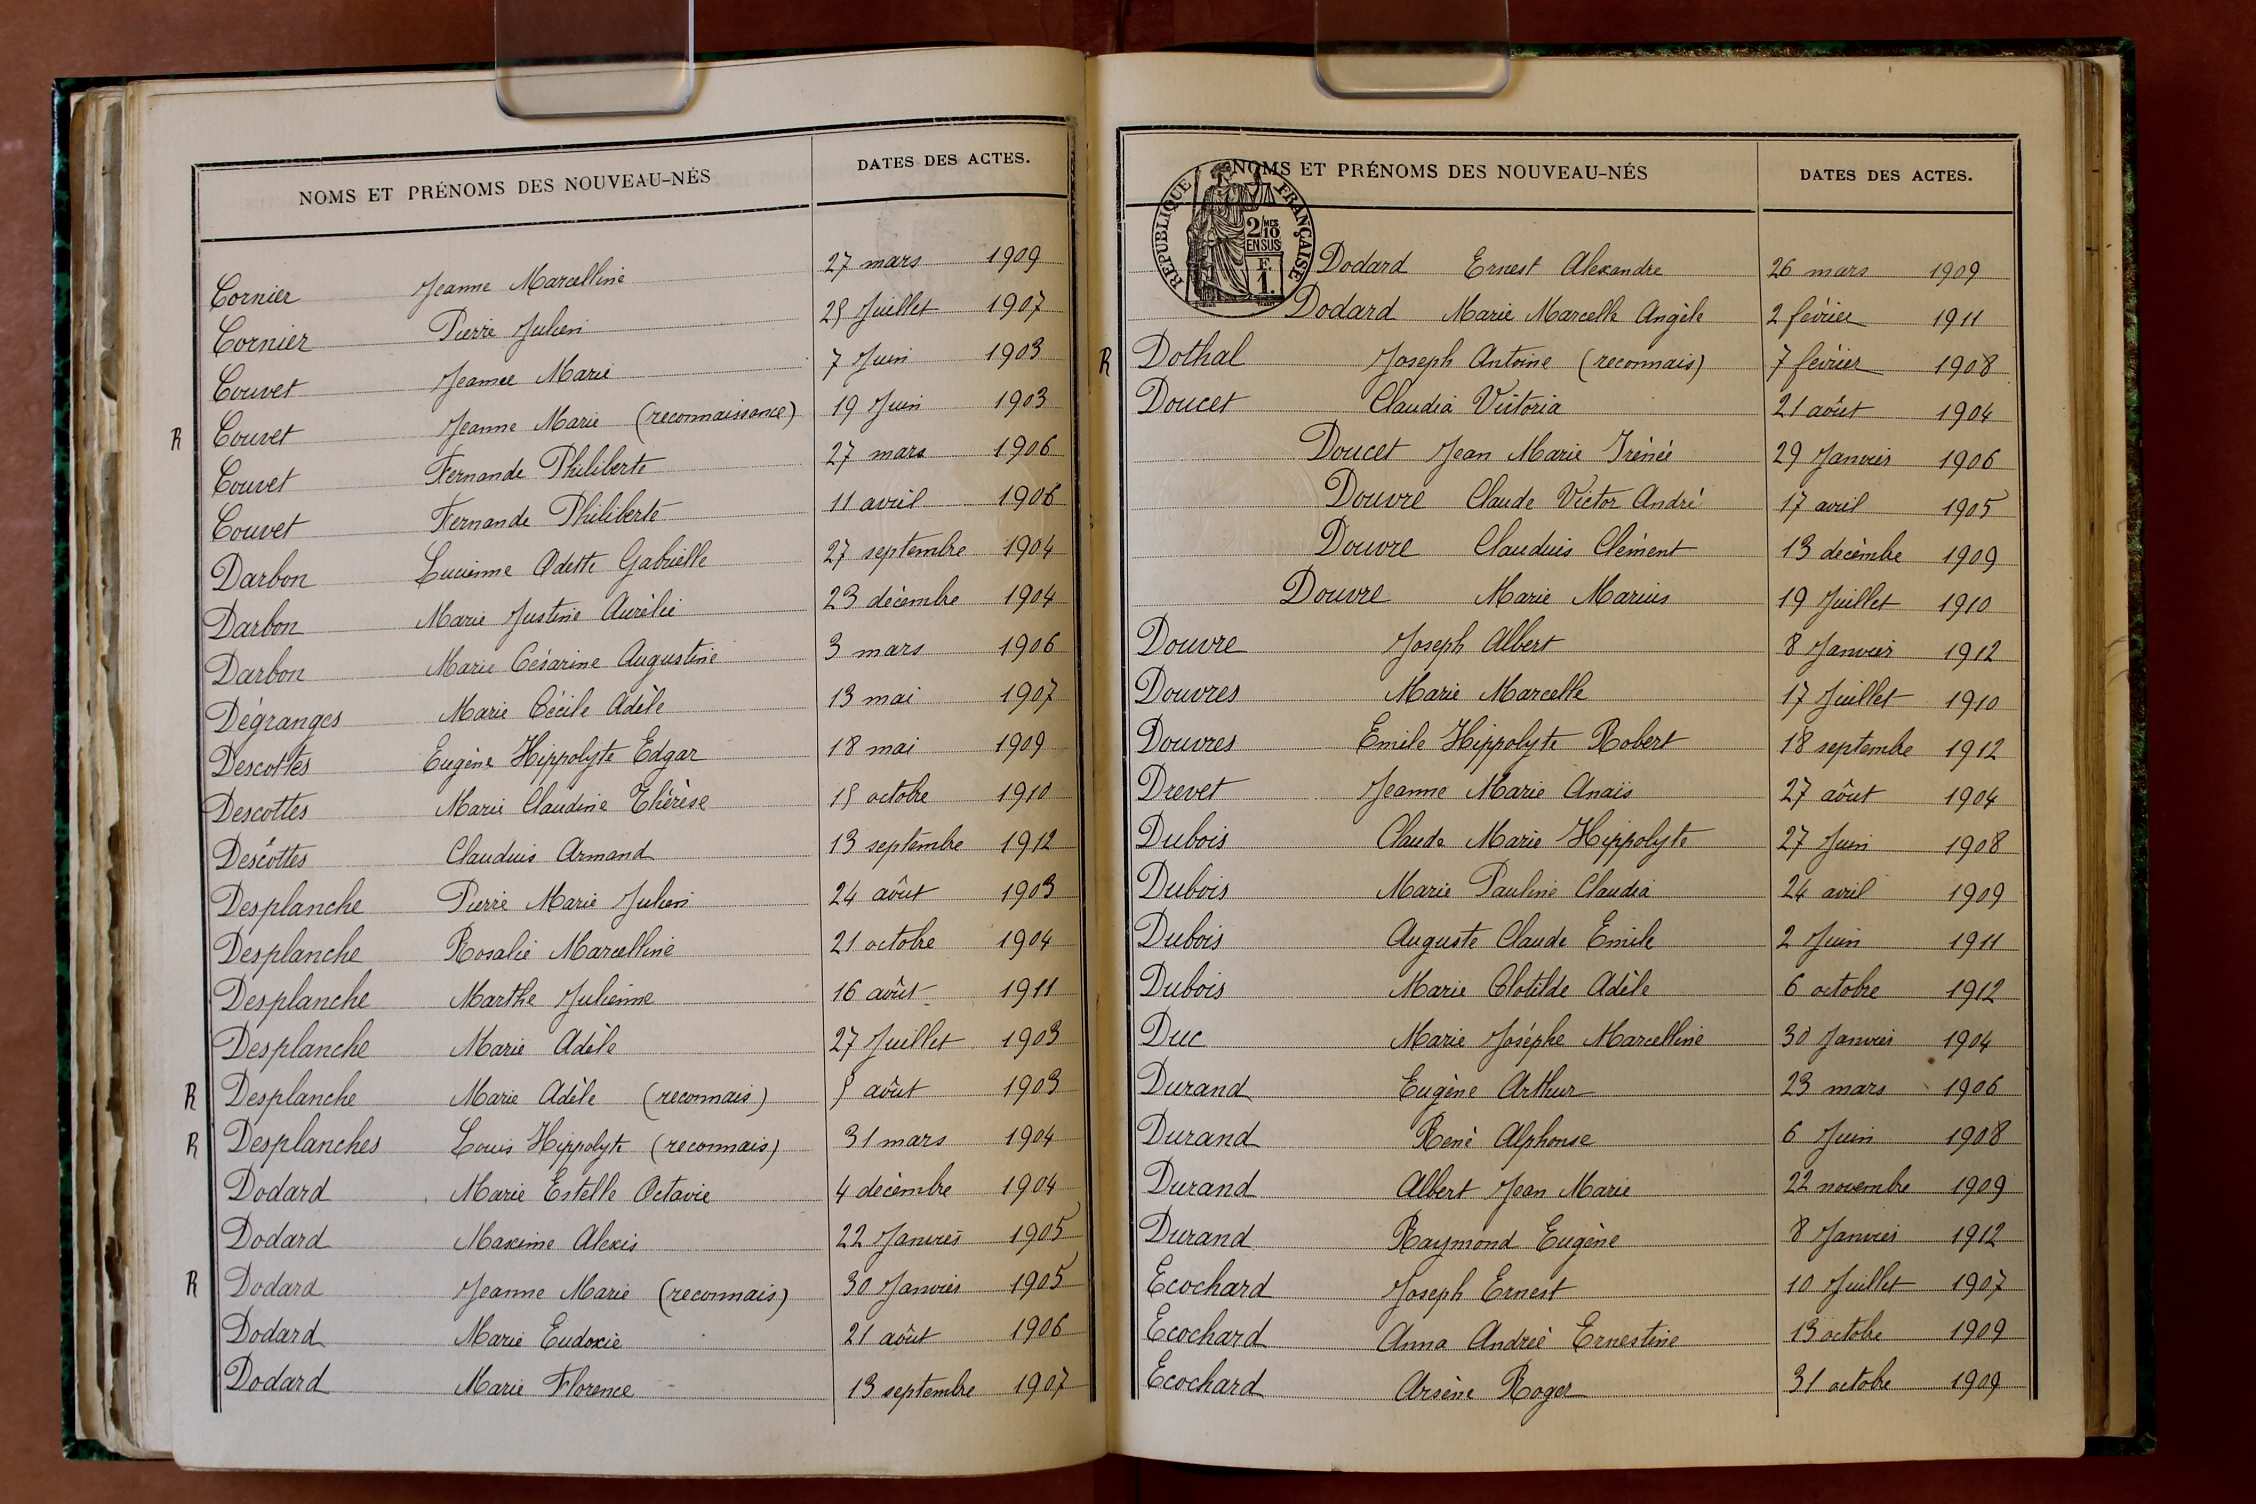 NOMS ET PRÉNOMS DES NOUVEAU-NÉS DATES DES ACTES.
Cornier Jeanne Marcelline 27 mars 1909
Cornier Pierre Julien 25 Juillet 1907
Couvet Jeanne Marie 7 Juin 1903
R Couvet Jeanne Marie (reconnaissance) 19 Juin 1903
Couvet Fernande Philiberte 27 mars 1906
Couvet Fernande Philiberte 11 avril 1906
Darbon Lucienne Odette Gabrielle 27 septembre 1904
Darbon Marie Justine Aurélie 23 décembre 1904
Darbon Marie Césarine Augustine 3 mars 1906
Dégranges Marie Cécile Adèle 13 mai 1907
Descottes Eugène Hippolyte Edgar 18 mai 1909
Descottes Marie Claudine Thérèse 15 octobre 1910
Descôttes Claudius Armand 13 septembre 1912
Desplanche Pierre Marie Julien 24 aôut 1903
Desplanche Rosalie Marcelline 21 octobre 1904
Desplanche Marthe Julienne 16 aôut 1911
Desplanche Marie Adèle 27 Juillet 1903
R Desplanche Marie Adèle (reconnais) 5 aôut 1903
R Desplanches Louis Hippolyte (reconnais) 31 mars 1904
Dodard Marie Estelle Octavie 4 décembre 1904
Dodard Maxime Alexis 22 Janvier 1905
R Dodard Jeanne Marie (reconnais) 30 Janvier 1905
Dodard Marie Eudoxie 21 aôut 1906
Dodard Marie Florence 13 septembre 1907
NOMS ET PRÉNOMS DES NOUVEAU-NÉS DATES DES ACTES.
RÉPUBLIQUE FRANÇAISE
2/10 MES
EN SUS
F.
1.
Dodard Ernest Alexandre 26 mars 1909
Dodard Marie Marcelle Angèle 2 février 1911
R Dothal Joseph Antoine (reconnais) 7 février 1908
Doucet Claudia Victoria 21 aôut 1904
Doucet Jean Marie Irénée 29 Janvier 1906
Douvre Claude Victor André 17 avril 1905
Douvre Claudius Clément 13 décembre 1909
Douvre Marie Marius 19 Juillet 1910
Douvre Joseph Albert 8 Janvier 1912
Douvres Marie Marcelle 17 Juillet 1910
Douvres Emile Hippolyte Robert 18 septembre 1912
Drevet Jeanne Marie Anaïs 27 aôut 1904
Dubois Claude Marie Hippolyte 27 Juin 1908
Dubois Marie Pauline Claudia 24 avril 1909
Dubois Auguste Claude Emile 2 Juin 1911
Dubois Marie Clotilde Adèle 6 octobre 1912
Duc Marie Joséphe Marcelline 30 Janvier 1904
Durand Eugène Arthur 23 mars 1906
Durand René Alphonse 6 Juin 1908
Durand Albert Jean Marie 22 novembre 1909
Durand Raymond Eugène 8 Janvier 1912
Ecochard Joseph Ernest 10 Juillet 1907
Ecochard Anna Andrée Ernestine 13 octobre 1909
Ecochard Arsène Roger 31 octobre 1909